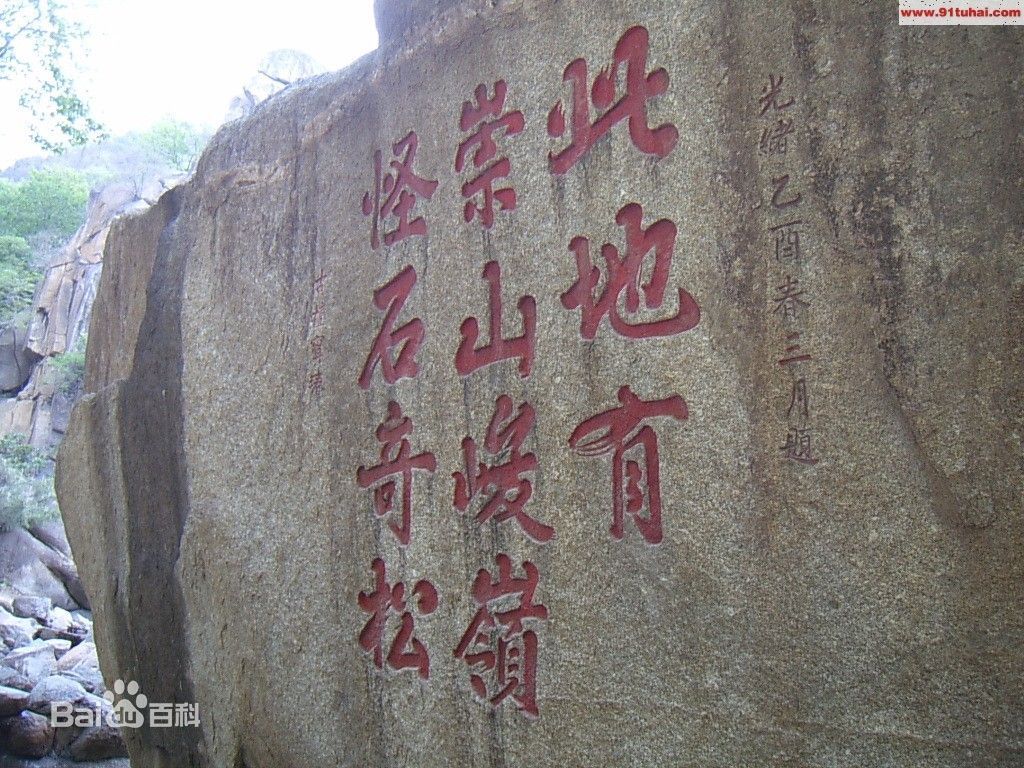 www.91tuhai.com
光緒乙酉春三月題
此地有
崇山峻嶺
怪石奇松
Baidu百科